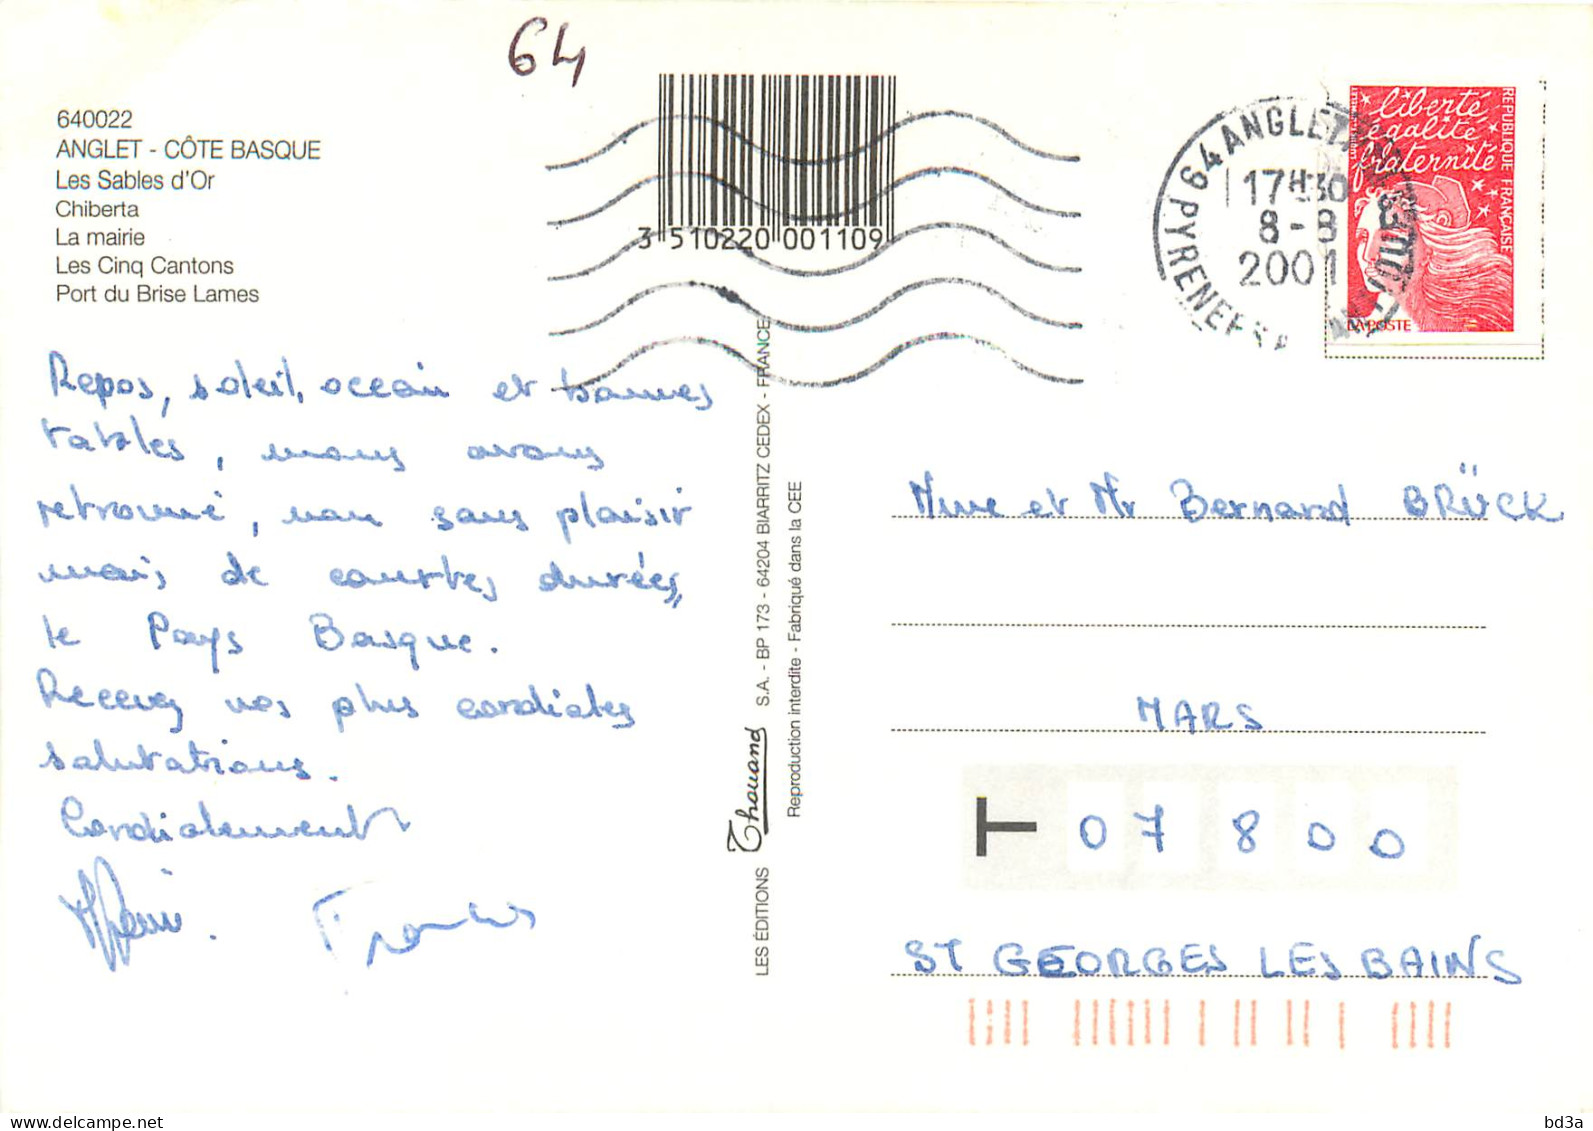 64
640022
ANGLET - CÔTE BASQUE
Les Sables d'Or
Chiberta
La mairie
Les Cinq Cantons
Port du Brise Lames
3 510220 001109
64 ANGLET
17H30
8-8
2001
PYRENEES
liberté
égalité
fraternité
REPUBLIQUE FRANÇAISE
LA POSTE
Repos, soleil, océan et bonnes
tables, nous avons
retrouvé, non sans plaisir
mais de courtes durées,
le Pays Basque.
Recevez nos plus cordiales
salutations.
Cordialement
Francis
LES ÉDITIONS Thouand S.A. - BP 173 - 64204 BIARRITZ CEDEX - FRANCE
Reproduction interdite - Fabriqué dans la CEE
Mme et Mr Bernard BRÜCK
MARS
T 07800
ST GEORGES LES BAINS
delcampe.net
bd3a